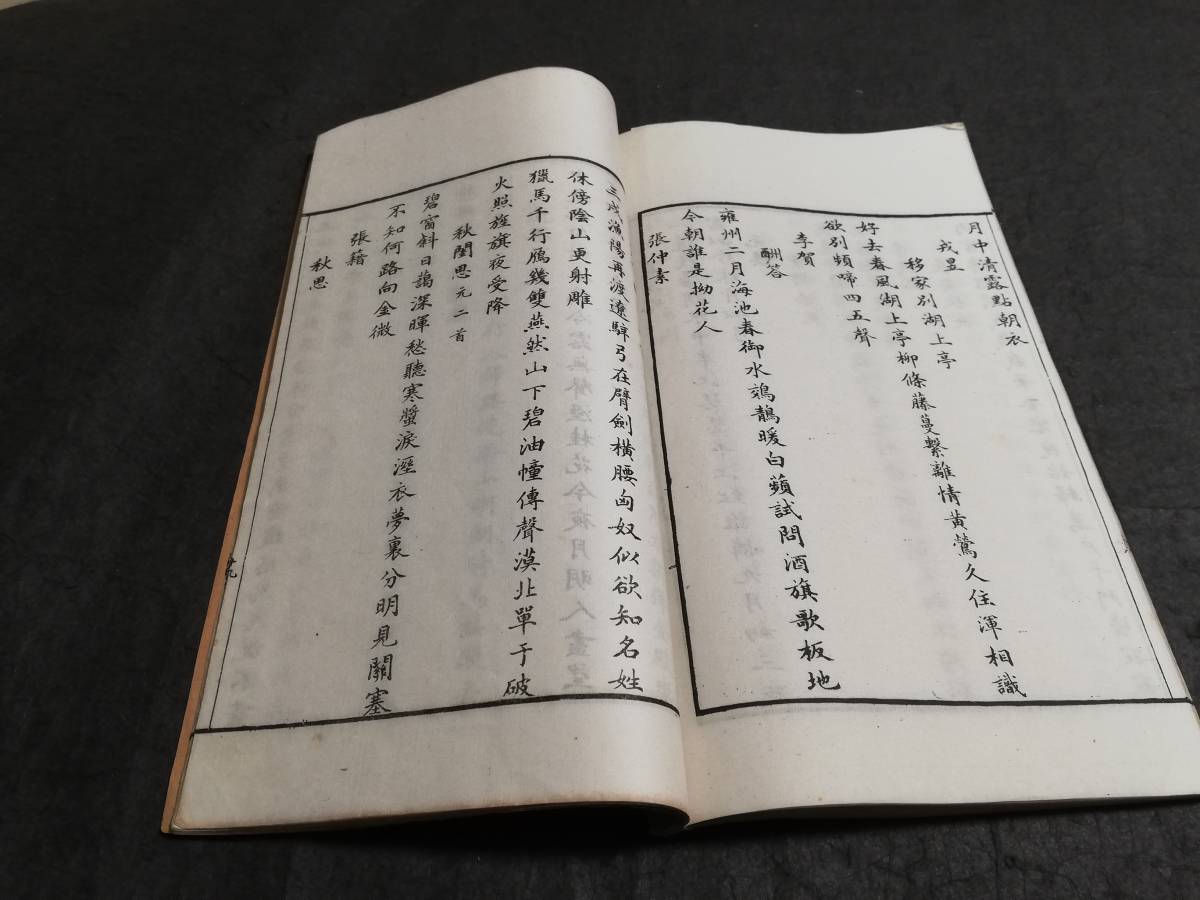 月中清露點朝衣
戎昱
移家別湖上亭
好去春風湖上亭柳條藤蔓繫離情黃鶯久住渾相識
欲別頻啼四五聲
李賀
酬答
雍州二月海池春御水鵁鶄暖白蘋試問酒旗歌板地
今朝誰是拗花人
張仲素
三戍漁陽再渡遼騂弓在臂劍橫腰匈奴似欲知名姓
休傍陰山更射雕
獵馬千行鴈幾雙燕然山下碧油幢傳聲漠北單于破
火照旌旗夜受降
秋閨思元二首
碧窗斜日藹深暉愁聽寒螿淚溼衣夢裏分明見關塞
不知何路向金微
張籍
秋思